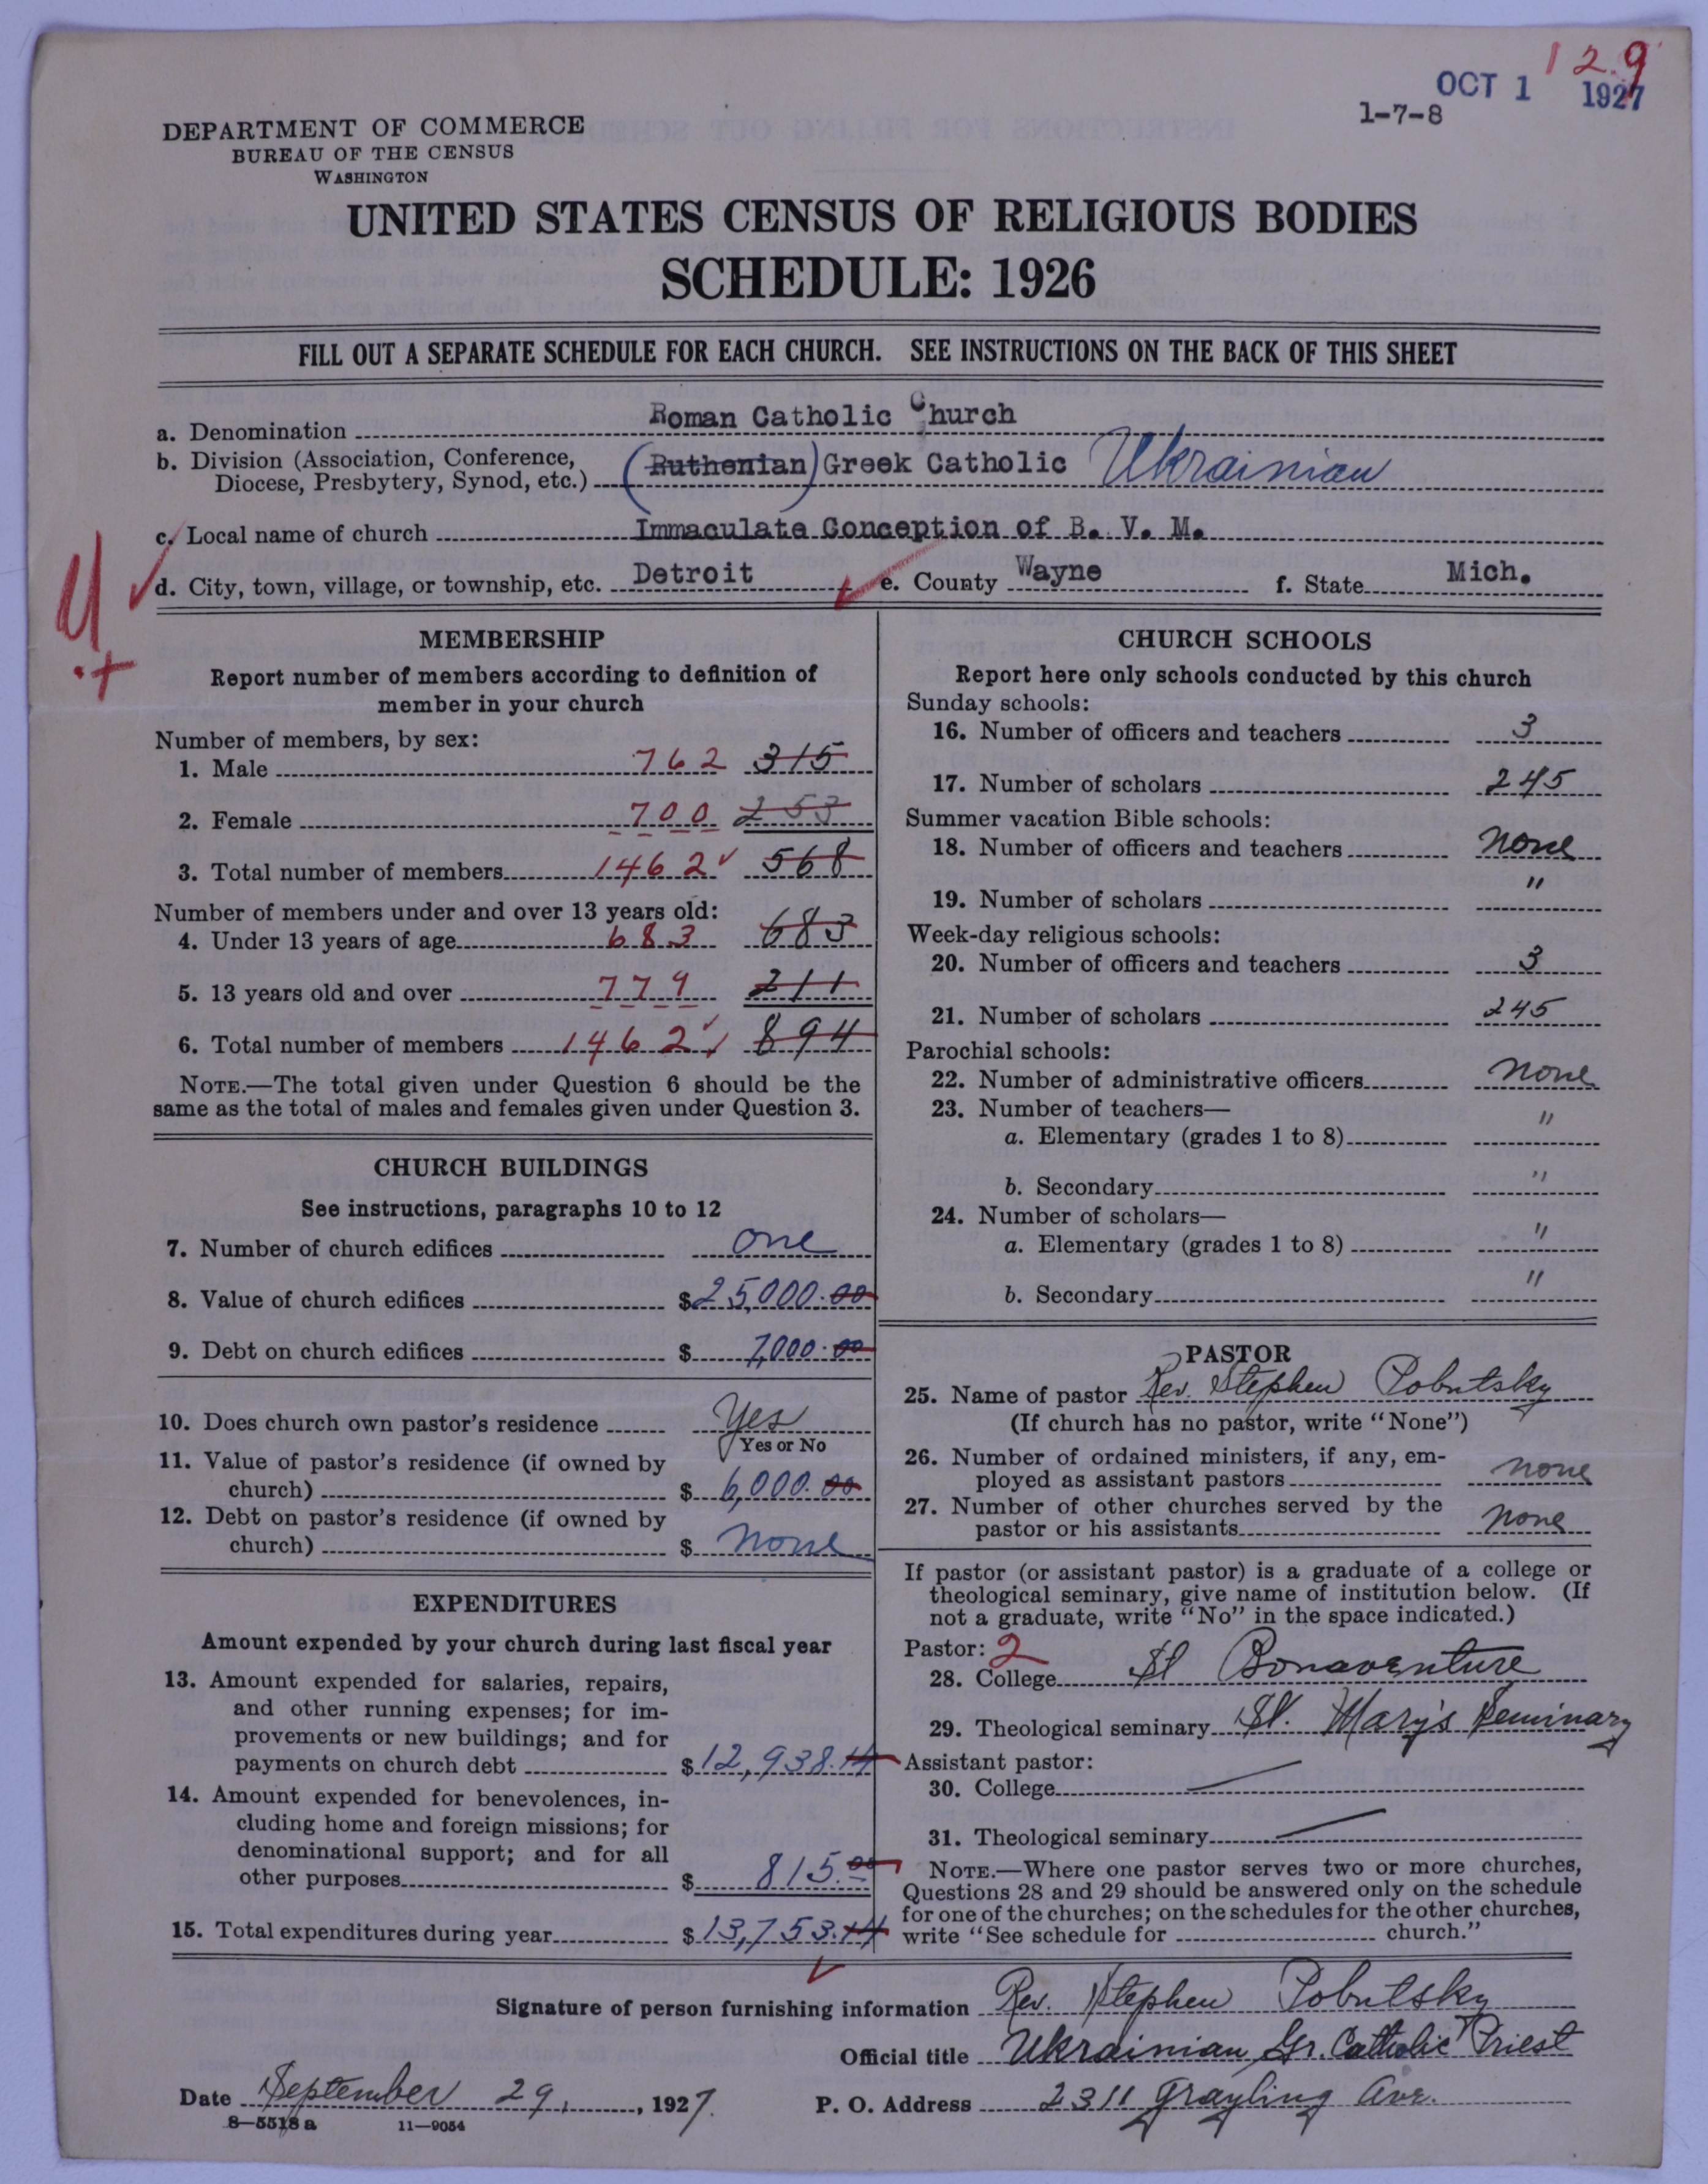 129
OCT 1 1927
1-7-8
DEPARTMENT OF COMMERCE
BUREAU OF THE CENSUS
WASHINGTON
UNITED STATES CENSUS OF RELIGIOUS BODIES
SCHEDULE: 1926
FILL OUT A SEPARATE SCHEDULE FOR EACH CHURCH. SEE INSTRUCTIONS ON THE BACK OF THIS SHEET
a. Denomination Roman Catholic Church
b. Division (Association, Conference, Diocese, Presbytery, Synod, etc.) (Ruthenian) Greek Catholic Ukrainian
c. Local name of church Immaculate Conception of B. V. M.
d. City, town, village, or township, etc. Detroit e. County Wayne f. State Mich.
MEMBERSHIP
Report number of members according to definition of
member in your church
Number of members, by sex:
1. Male 762 315
2. Female 700 253
3. Total number of members 1462 568
Number of members under and over 13 years old:
4. Under 13 years of age 683 683
5. 13 years old and over 779 211
6. Total number of members 1462 894
NOTE.—The total given under Question 6 should be the
same as the total of males and females given under Question 3.
CHURCH BUILDINGS
See instructions, paragraphs 10 to 12
7. Number of church edifices one
8. Value of church edifices $25,000.00
9. Debt on church edifices $7,000.00
10. Does church own pastor's residence Yes
Yes or No
11. Value of pastor's residence (if owned by
church) $6,000.00
12. Debt on pastor's residence (if owned by
church) $none
EXPENDITURES
Amount expended by your church during last fiscal year
13. Amount expended for salaries, repairs,
and other running expenses; for im-
provements or new buildings; and for
payments on church debt $12,938.14
14. Amount expended for benevolences, in-
cluding home and foreign missions; for
denominational support; and for all
other purposes $815.00
15. Total expenditures during year $13,753.14
CHURCH SCHOOLS
Report here only schools conducted by this church
Sunday schools:
16. Number of officers and teachers 3
17. Number of scholars 245
Summer vacation Bible schools:
18. Number of officers and teachers none
19. Number of scholars "
Week-day religious schools:
20. Number of officers and teachers 3
21. Number of scholars 245
Parochial schools:
22. Number of administrative officers none
23. Number of teachers—
a. Elementary (grades 1 to 8) "
b. Secondary "
24. Number of scholars—
a. Elementary (grades 1 to 8) "
b. Secondary "
PASTOR
25. Name of pastor Rev. Stephen Pobutsky
(If church has no pastor, write "None")
26. Number of ordained ministers, if any, em-
ployed as assistant pastors none
27. Number of other churches served by the
pastor or his assistants none
If pastor (or assistant pastor) is a graduate of a college or
theological seminary, give name of institution below. (If
not a graduate, write "No" in the space indicated.)
Pastor: 2
28. College St Bonaventure
29. Theological seminary St. Mary's Seminary
Assistant pastor:
30. College
31. Theological seminary
NOTE.—Where one pastor serves two or more churches,
Questions 28 and 29 should be answered only on the schedule
for one of the churches; on the schedules for the other churches,
write "See schedule for church."
Signature of person furnishing information Rev. Stephen Pobutsky
Official title Ukrainian Gr. Catholic Priest
Date September 29, 1927. P. O. Address 2311 Grayling Ave.
8—5518 a 11—9054